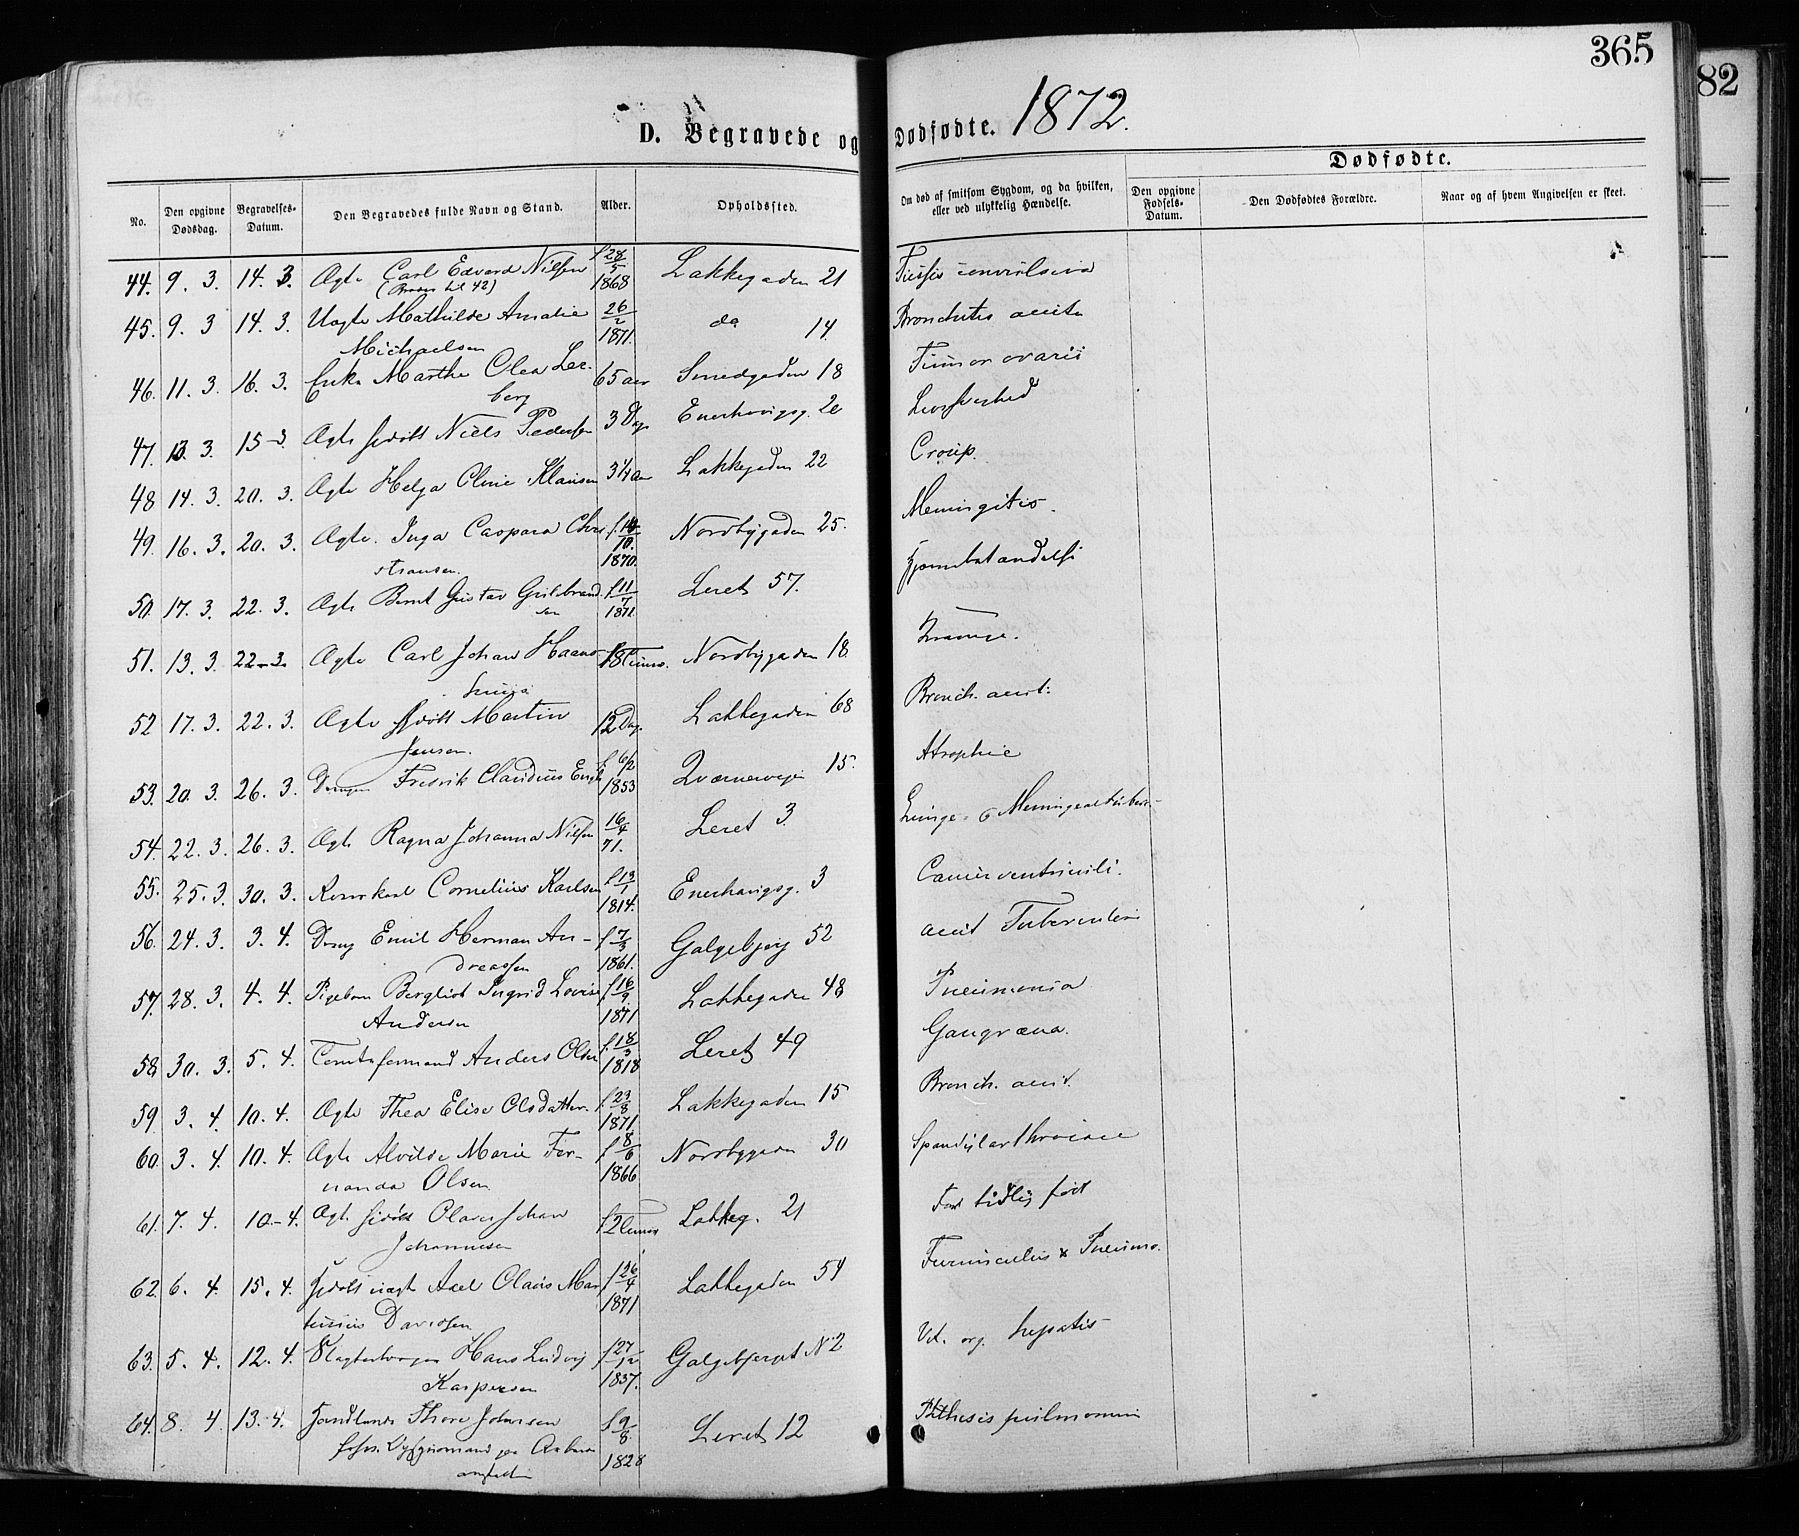 365
82
D. Begravede og Dødfødte. 1872.
Dødfødte.
No.
Den opgivne Dødsdag.
Begravelses-Datum.
Den Begravedes fulde Navn og Stand.
Alder.
Opholdssted.
Om død af smitsom Sygdom, og da hvilken, eller ved ulykkelig Hændelse.
Den opgivne Fødsels-Datum.
Den Dødfødtes Forældre.
Naar og af hvem Angivelsen er skeet.
44. 9. 3. 14. 3. Ægte Carl Edvard Nilsen f 28/5 1868 Lakkegaden 21 Tussis convulsiva
(Broder til 42)
45. 9. 3 14. 3. Uægte Mathilde Amalie 26/2 1871. do 14. Bronchitis acuta
Michaelsen
46. 11. 3. 16. 3. Enke Marthe Olea Lee- 65 aar Smedgaden 18 Tumor ovarii
berg
47. 13. 3. 15-3 Ægte hjdøbt Niels Pedersen 3 Dage Enerhaugsg. 20 Livssvaghed
48 14. 3. 20. 3. Ægte Helga Oline Klausen 3 1/4 aar Lakkegaden 22 Croup.
49. 16. 3. 20. 3. Ægte. Inga Caspara Chri f. 14/10. 1870. Nordbygaden 25. Meningitis.
stiansen.
50. 17. 3. 22. 3. Ægte Bernt Gustav Gulbrand f 11/7 1871. Leret 57. Hjernebetændelse
sen
51. 13. 3. 22-3. Ægte Carl Johan Haans 18 Timer. Nordbygaden 18. Krampe.
52 17. 3. 22. 3. Ægte hjdøbt Martin 12 Dage Lakkegaden 68 Bronch. acut:
Jensen.
53. 20. 3. 26. 3. Drengen Fredrik Claudius Engh f. 6/2 1853 Kværnerveien 15. Atrophie
54. 22. 3. 26. 3. Ægte Ragna Johanna Nilsen 16/4 71. Leret 3. Lunge- o Meningealtuber-
55. 25. 3. 30. 3. Kone Karl Cornelius Karlsen f 13/1 1814. Enerhaugsg. 3 Cancer ventriculi.
56. 24. 3. 3. 4. Dreng Emil Herman An- f 7/3 1861. Galgebjerg 52 acut Tuberculos
dreassen
57. 28. 3. 4. 4. Pigebarn Bergliot Ingrid Lovise f. 16/9. 1871 Lakkegaden 48 Pneumonia
Andersen
58. 30. 3. 5. 4. Tomteformand Anders Olsen f. 18/3 1818 Leret 49 Gangræna.
59. 3. 4. 10. 4. Ægte Thea Elise Olsdatter. f. 23/8 1871 Lakkegaden 15 Bronch. acut.
60. 3. 4. 10. 4. Ægte Alvilde Marie Fer- f 8/6 1866 Nordbygaden 30 Spondylarthrocace
nanda Olsen
61. 7. 4. 10.-4. Ægte hjdøbt Olaves Johan 2 Timer Lakkeg. 21 For tidlig født
Johannesen
62. 6. 4. 15. 4. Hjdøbt uægt Axel Olaus Mar f 26/4 1871 Lakkegaden 54 Furunculus & Pneumo.
tinius Davidsen
63. 5. 4. 12. 4. Slagtersvend Hans Ludvig f 27/12 1837. Galgebjerget N 2 Vit. org. hepatis
Kaspersen
64. 8. 4 13. 4. Handlende Thore Johnsen f 9/8. 1828 Leret 12 Phthisis pulmonum